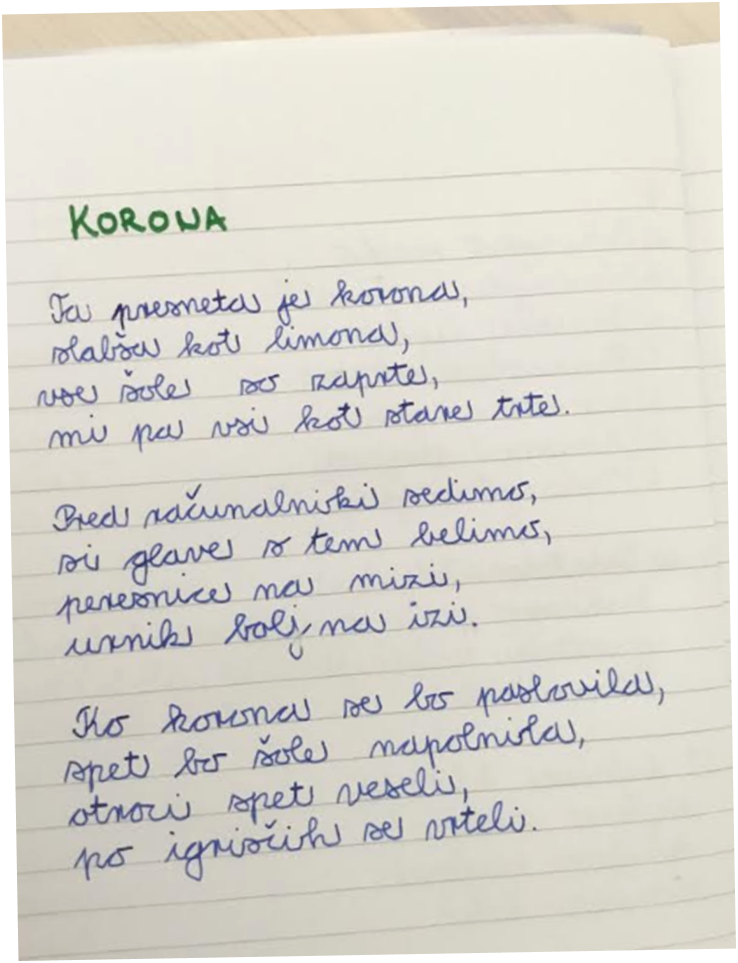 KORONA
Ta presneta je korona,
slabša kot limona,
vse šole so zaprte,
mi pa vsi kot stare trte.
Pred računalniki sedimo,
si glave s tem belimo,
peresnice na mizi,
urnik bolj na izi.
Ko korona se bo poslovila,
spet bo šole napolnila,
otroci spet veseli,
po igriščih se vrteli.